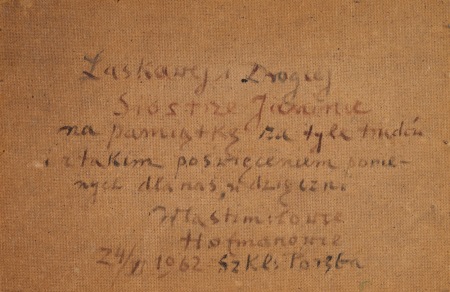 Łaskawej i Drogiej
Siostrze Janinie
na pamiątkę za tyle trudów
i z takim poświęceniem, ponie-
nych dla nas, wdzięczni
Wlastimilowie
Hofmanowie
24/VI 1962 Szkl. Poręba